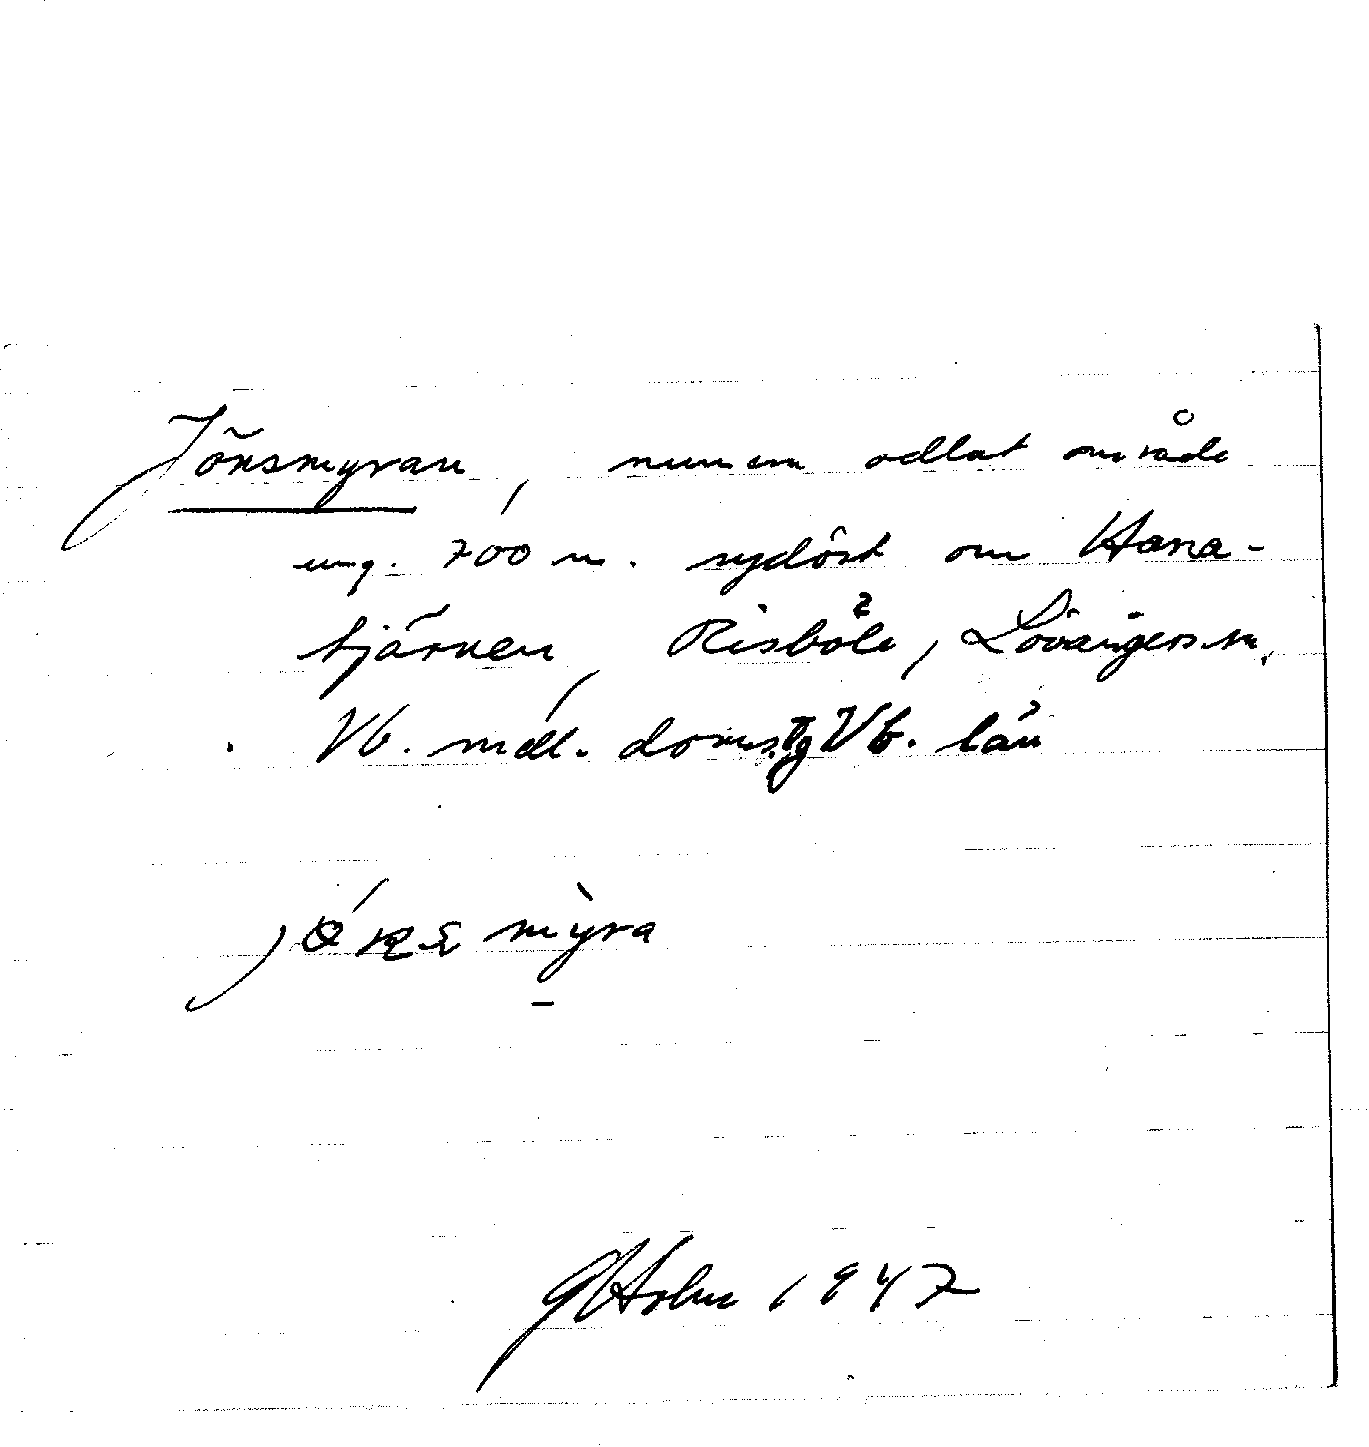 Jönsmyran, numera odlat område
ung. 700 m. sydöst om Hara-
tjärnen, Risböle, Lövångers sn,
Vb. mell. doms. Vb. län
myra
G Holm 1947